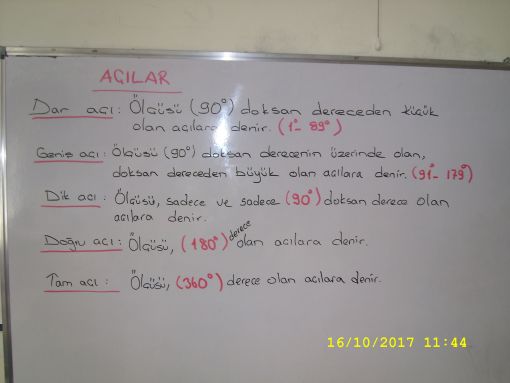 AÇILAR
Dar açı : Ölçüsü (90°) doksan dereceden küçük
olan açılara denir. (1°- 89°)
Geniş açı : Ölçüsü (90°) doksan derecenin üzerinde olan,
doksan dereceden büyük olan açılara denir. (91°- 179°)
Dik açı : Ölçüsü, sadece ve sadece (90°) doksan derece olan
açılara denir.
Doğru açı : Ölçüsü, (180°) derece olan açılara denir.
Tam açı : Ölçüsü, (360°) derece olan açılara denir.
16/10/2017 11:44